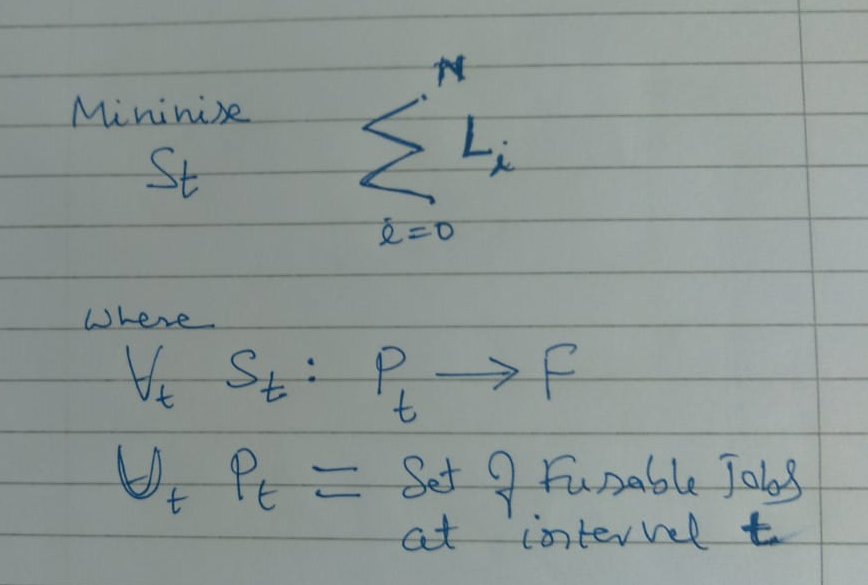 Mininise
S_t ∑_{i=0}^{N} L_i
where
∀_t S_t : P_t → F
∀_t P_t = Set of Fusable Jobs
at interval t